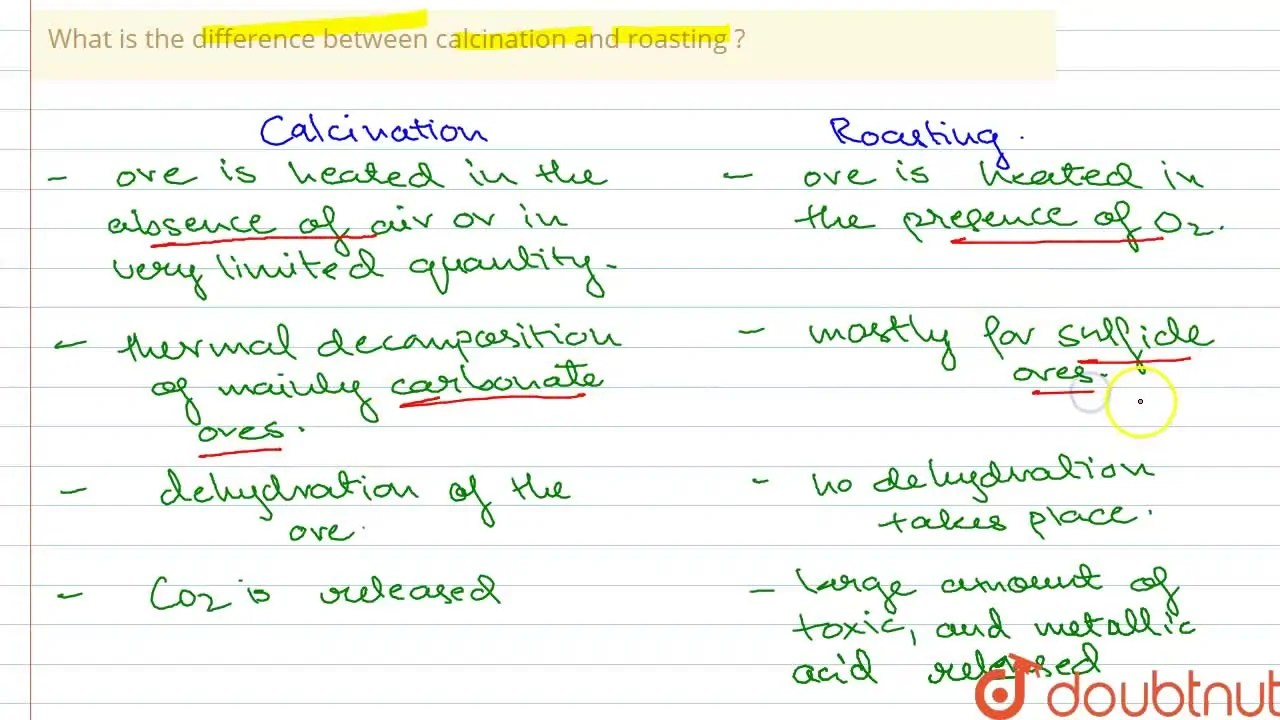 What is the difference between calcination and roasting ?
Calcination
Roasting.
- ore is heated in the
absence of air or in
very limited quantity.
- ore is heated in
the presence of O2.
- thermal decomposition
of mainly carbonate
ores.
- mostly for sulfide
ores.
- dehydration of the
ore.
- no dehydration
takes place.
- CO2 is released
- large amount of
toxic, and metallic
acid released
doubtnut